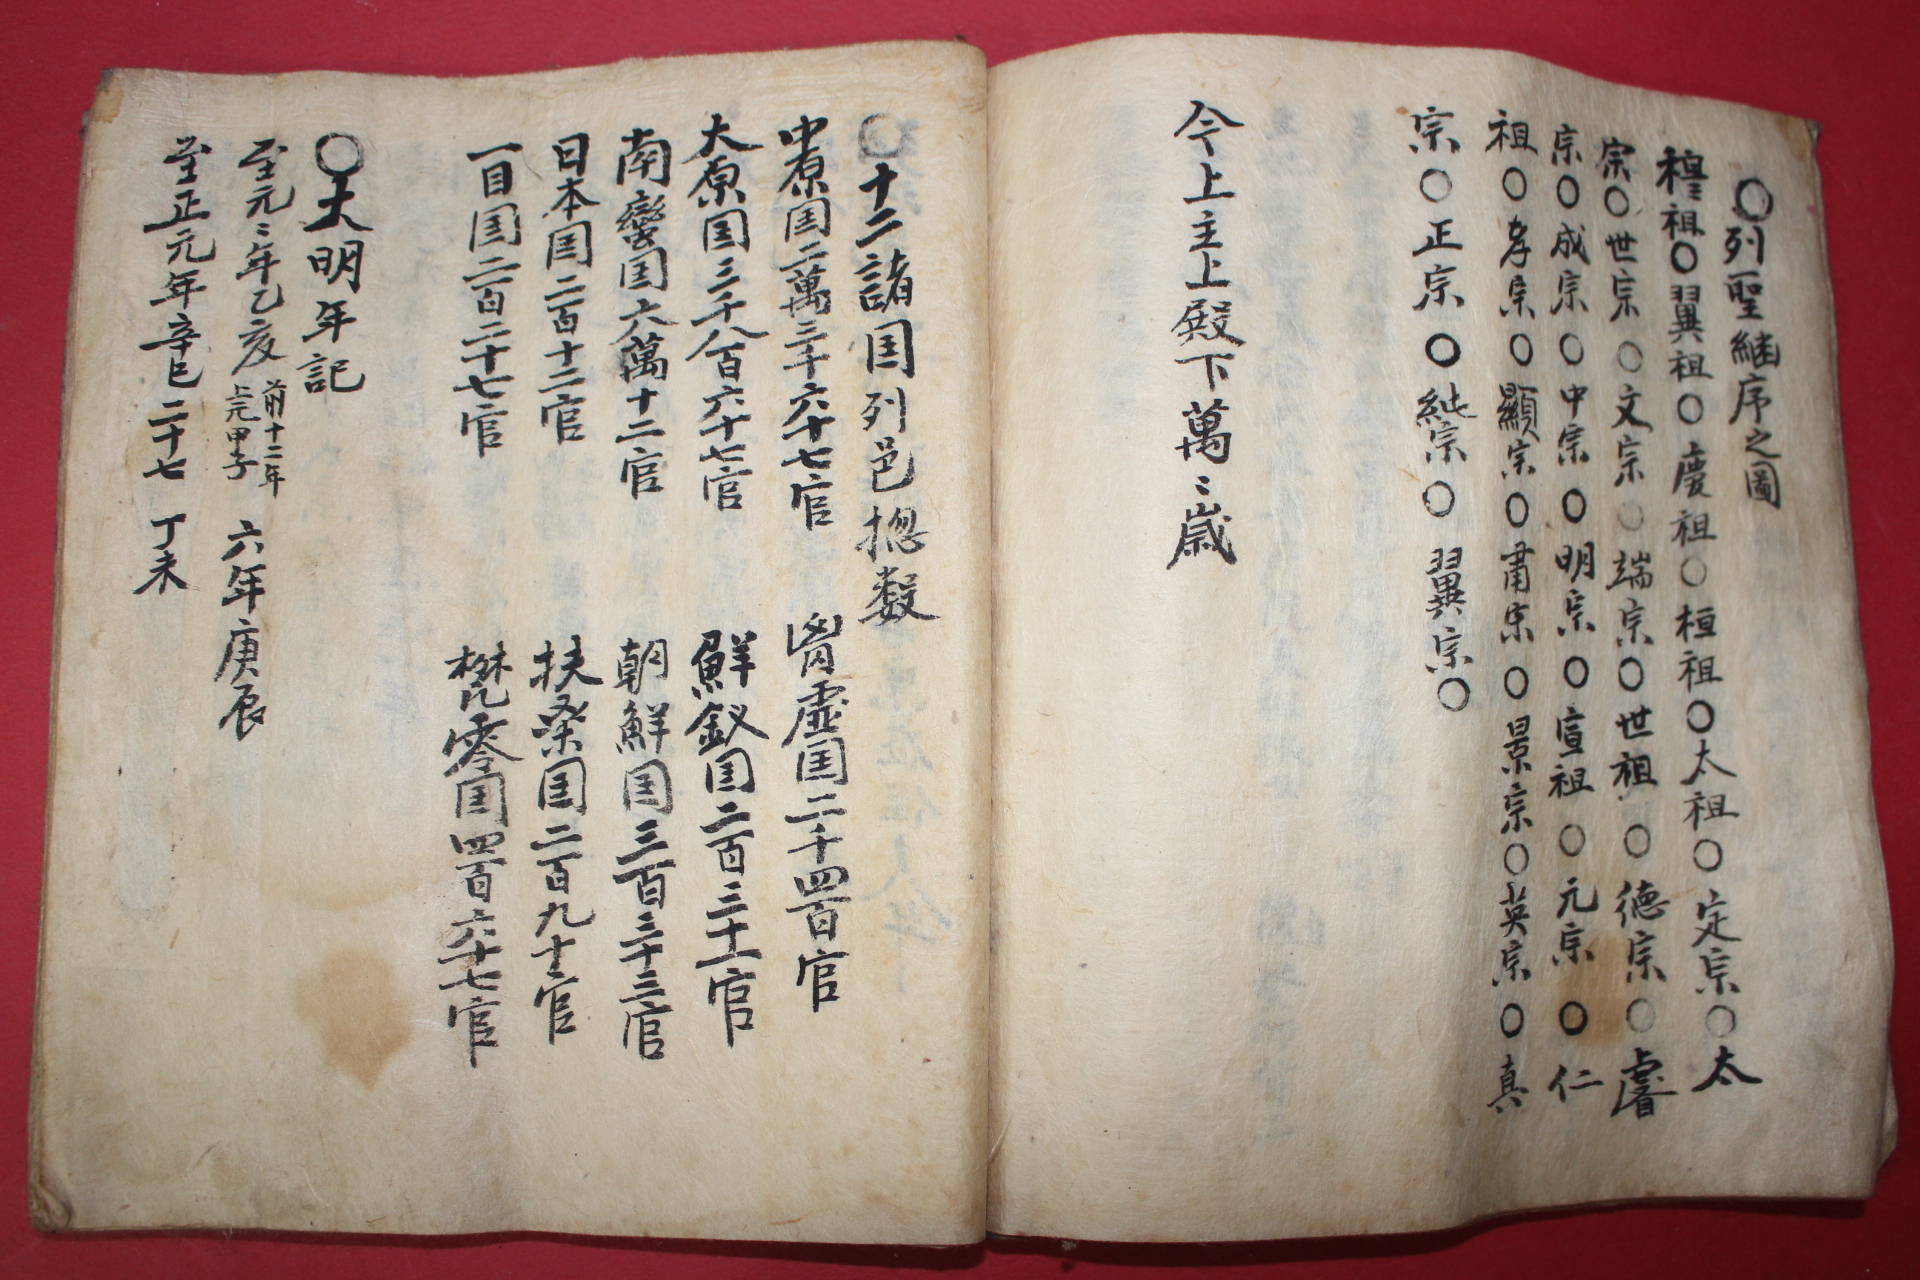 ○列聖継序之圖
穆祖○翼祖○慶祖○桓祖○太祖○定宗○太
宗○世宗○文宗○端宗○世祖○德宗○睿
宗○成宗○中宗○明宗○宣祖○元宗○仁
祖○孝宗○顯宗○肅宗○景宗○英宗○真
宗○正宗○純宗○翼宗○
今上主上殿下萬〻歲
○十二諸国列邑摠数
中原国二萬三千六十七官 虛国二千四百官
大原国三千八百六十七官 鮮釵国二百三十一官
南蠻国六萬十二官 朝鮮国三百三十三官
日本国二百十二官 扶桑国二百九十二官
一目国二百二十七官 零国四百六十七官
○大明年記
至元〻年乙亥 前十二年上元甲子 六年庚辰
至正元年辛巳 二十七 丁未